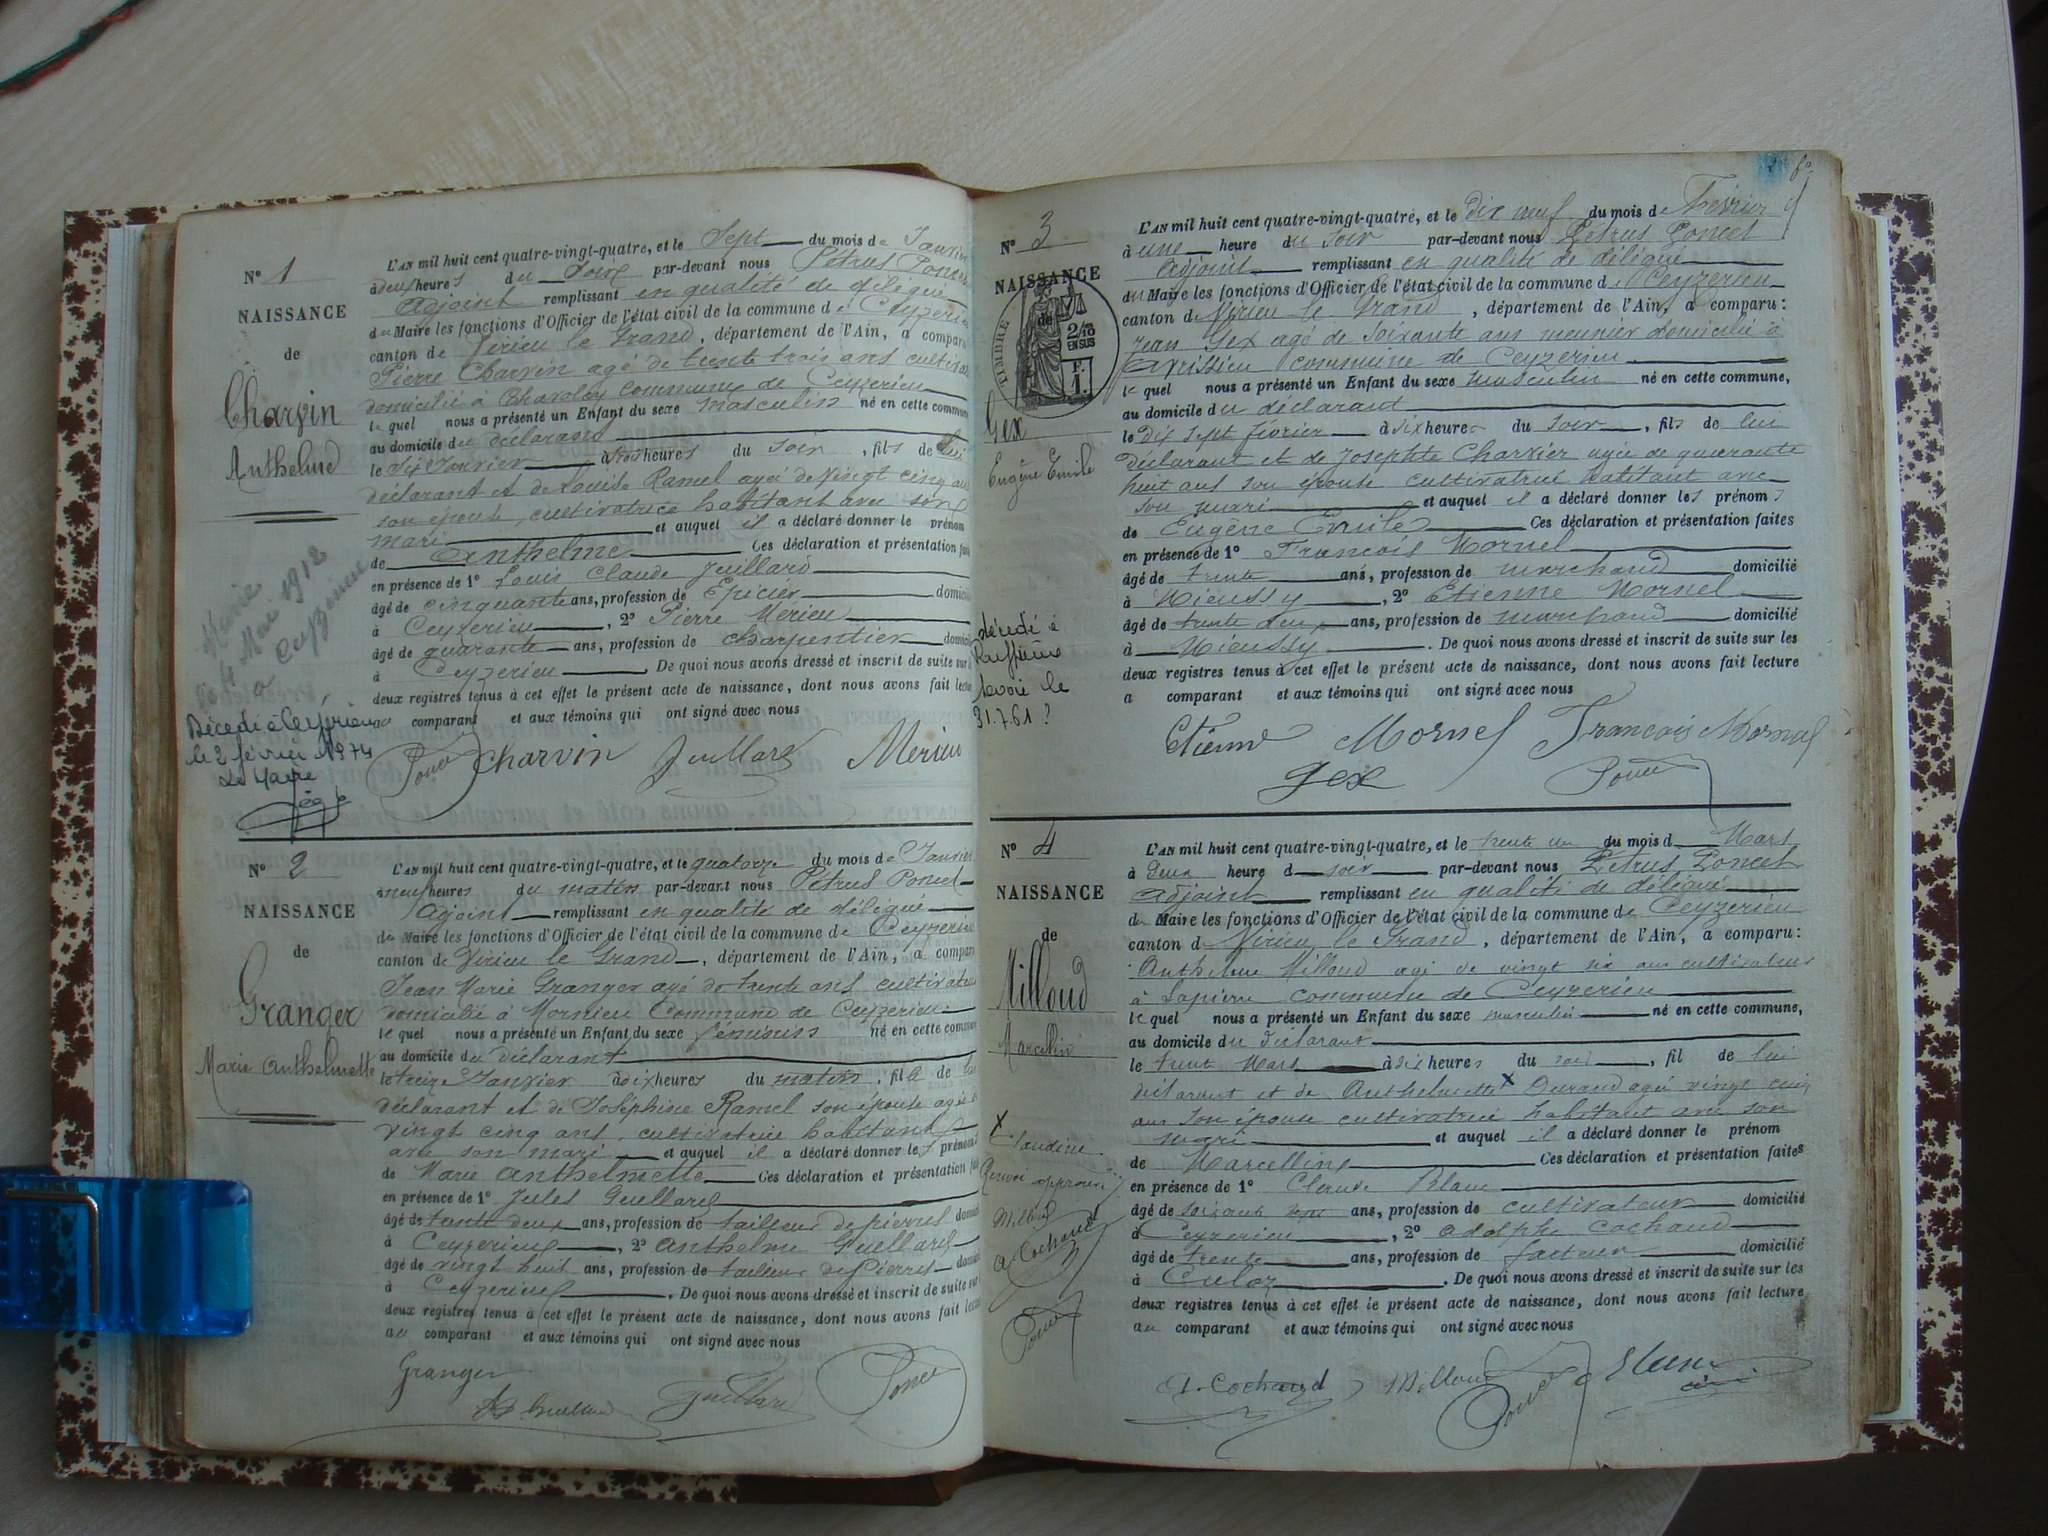 Nº 1
NAISSANCE
de
Charvin
Anthelme
L'AN mil huit cent quatre-vingt-quatre, et le Sept du mois de Janvier
à deux heures du Soir par-devant nous Pétrus Poncet
Adjoint remplissant en qualité de délégué
du Maire les fonctions d'Officier de l'état civil de la commune de Ceyzerieu
canton de Virieu le Grand, département de l'Ain, a comparu
Pierre Charvin agé de trente trois ans cultivateur
domicilié à commune de Ceyzerieu
le quel nous a présenté un Enfant du sexe masculin né en cette commune
au domicile du déclarant
le Six Janvier à heures du Soir, fils de lui
déclarant et de Louise Ramel agée de vingt cinq ans
son épouse, cultivatrice habitant avec son
mari et auquel il a déclaré donner le prénom
de Anthelme Ces déclaration et présentation faites
en présence de 1º Louis Claude Juillard
âgé de cinquante ans, profession de Epicier domicilié
à Ceyzerieu, 2º Pierre Merieu
âgé de quarante ans, profession de Charpentier domicilié
à Ceyzerieu. De quoi nous avons dressé et inscrit de suite sur les
deux registres tenus à cet effet le présent acte de naissance, dont nous avons fait lecture
au comparant et aux témoins qui ont signé avec nous
Marié
le 4 Mai 1912
a Ceyzerieu
Décédé à Ceyzerieu
le 2 février 1974
Le Maire
Poncet Charvin Juillard Merieu
Nº 2
NAISSANCE
de
Granger
Marie Anthelmette
L'AN mil huit cent quatre-vingt-quatre, et le quatorze du mois de Janvier
à neuf heures du matin par-devant nous Pétrus Poncet
Adjoint remplissant en qualité de délégué
du Maire les fonctions d'Officier de l'état civil de la commune de Ceyzerieu
canton de Virieu le Grand, département de l'Ain, a comparu
Jean Marie Granger agé de trente ans cultivateur
domicilié à Mornieu Commune de Ceyzerieu
le quel nous a présenté un Enfant du sexe féminin né en cette commune
au domicile du déclarant
le treize Janvier à dix heures du matin, fille de lui
déclarant et de Joséphine Ramel son épouse agée de
vingt cinq ans, cultivatrice habitant
avec son mari et auquel il a déclaré donner les prénoms
de Marie Anthelmette Ces déclaration et présentation faites
en présence de 1º Jules Guillard
âgé de trente deux ans, profession de tailleur de pierres domicilié
à Ceyzerieu, 2º Anthelme Guillard
âgé de vingt huit ans, profession de tailleur de Pierres domicilié
à Ceyzerieu. De quoi nous avons dressé et inscrit de suite sur les
deux registres tenus à cet effet le présent acte de naissance, dont nous avons fait lecture
au comparant et aux témoins qui ont signé avec nous
Granger
Guillard Poncet
Nº 3
NAISSANCE
de
TIMBRE
2/10
EN SUS
F.
1.
Gex
Eugène Emile
L'AN mil huit cent quatre-vingt-quatre, et le Dix neuf du mois de Février
à une heure du Soir par-devant nous Pétrus Poncet
Adjoint remplissant en qualité de délégué
du Maire les fonctions d'Officier de l'état civil de la commune de Ceyzerieu
canton de Virieu le Grand, département de l'Ain, a comparu:
Jean Gex agé de Soixante ans meunier domicilié à
Avrissieu commune de Ceyzerieu
le quel nous a présenté un Enfant du sexe masculin né en cette commune,
au domicile du déclarant
le dix sept février à dix heures du Soir, fils de lui
déclarant et de Josephte Charvier agée de quarante
huit ans son épouse cultivatrice habitant avec
son mari et auquel il a déclaré donner les prénoms
de Eugène Emile Ces déclaration et présentation faites
en présence de 1º François Mornel
âgé de trente ans, profession de marchand domicilié
à Mieussy, 2º Etienne Mornel
âgé de trente deux ans, profession de marchand domicilié
à Mieussy. De quoi nous avons dressé et inscrit de suite sur les
deux registres tenus à cet effet le présent acte de naissance, dont nous avons fait lecture
a comparant et aux témoins qui ont signé avec nous
décédé à
Ruffieux
Savoie le
31.7.61?
Etienne Mornel François Mornel
Gex Poncet
Nº 4
NAISSANCE
de
Milloud
Marcellin
L'AN mil huit cent quatre-vingt-quatre, et le trente un du mois d Mars
à Deux heure d soir par-devant nous Pétrus Poncet
Adjoint remplissant en qualité de délégué
du Maire les fonctions d'Officier de l'état civil de la commune de Ceyzerieu
canton de Virieu le Grand, département de l'Ain, a comparu:
Anthelme Milloud agé de vingt six ans cultivateur
à Lapierre commune de Ceyzerieu
le quel nous a présenté un Enfant du sexe masculin né en cette commune,
au domicile du déclarant
le trente Mars à dix heures du soir, fil de lui
déclarant et de Anthelmette x Durand agée vingt cinq
ans son épouse cultivatrice habitant avec son
mari et auquel il a déclaré donner le prénom
de Marcellin Ces déclaration et présentation faites
en présence de 1º Claude Blanc
âgé de soixante sept ans, profession de cultivateur domicilié
à Ceyzerieu, 2º Adolphe Cochaud
âgé de trente ans, profession de facteur domicilié
à Culoz. De quoi nous avons dressé et inscrit de suite sur les
deux registres tenus à cet effet le présent acte de naissance, dont nous avons fait lecture
au comparant et aux témoins qui ont signé avec nous
x
Claudine
Renvoi approuvé
Milloud
A Cochaud
Poncet
A. Cochaud Milloud Poncet Blanc